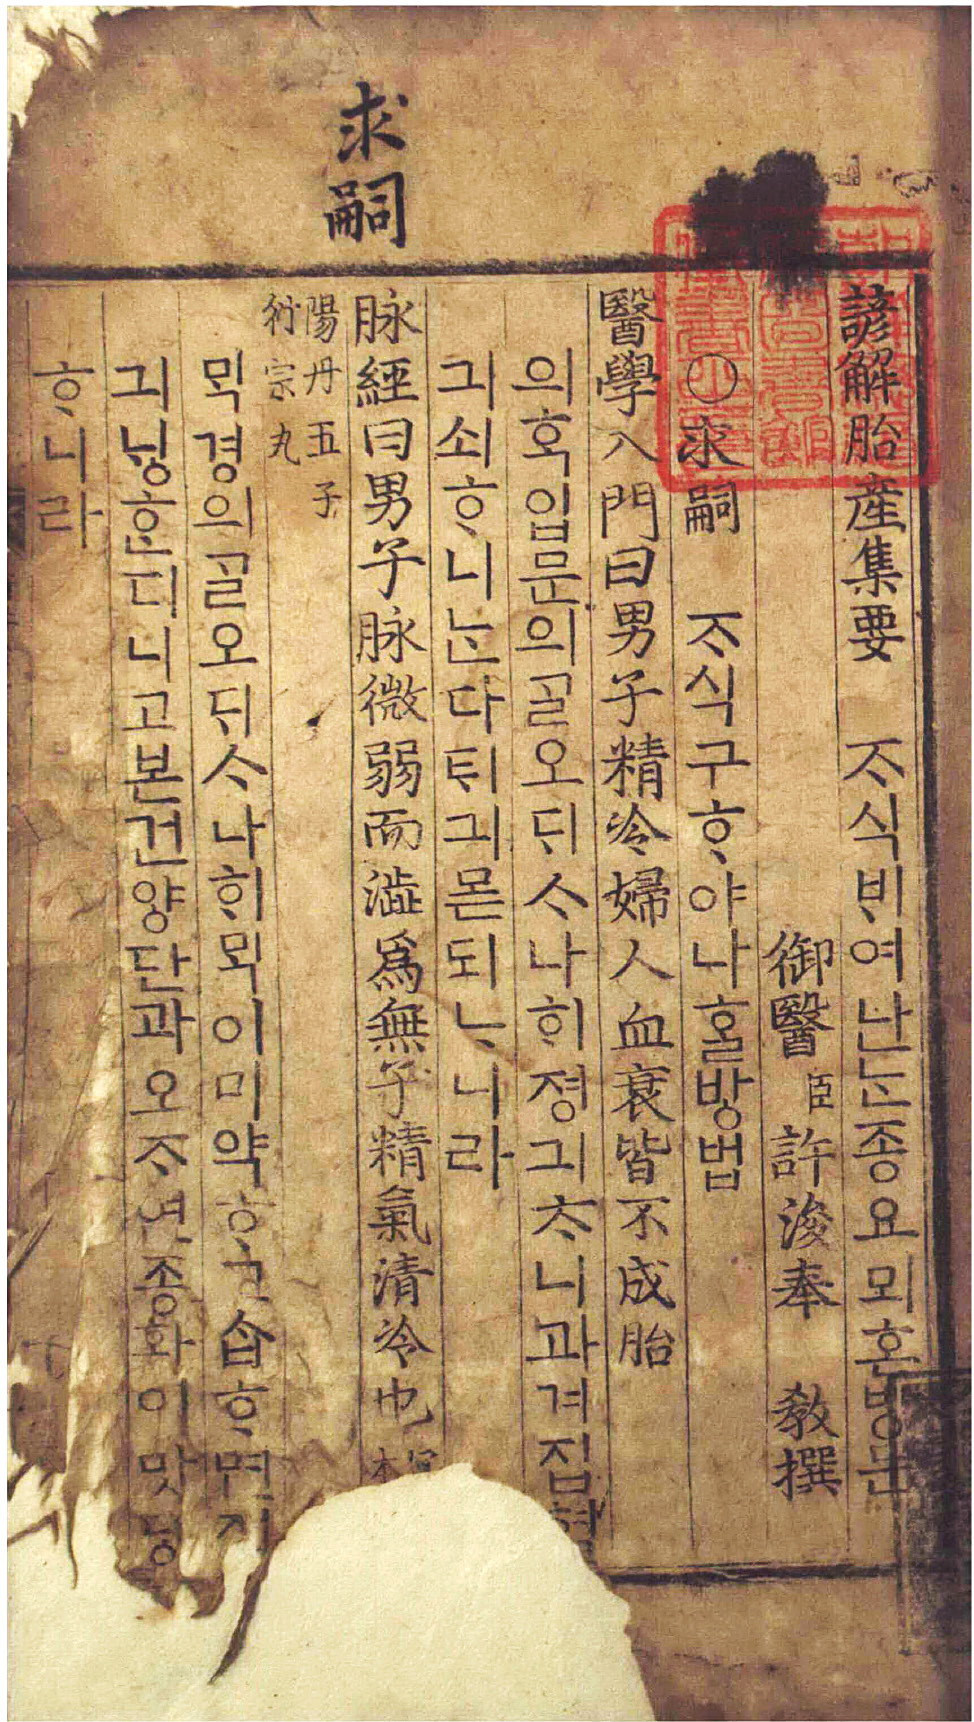 求嗣
諺解胎産集要 ᄌᆞ식ᄇᆡ여난ᄂᆞᆫ종요뫼혼방문
御醫臣許浚奉 敎撰
○求嗣 ᄌᆞ식구ᄒᆞ야나홀방법
醫學入門曰男子精冷婦人血衰皆不成胎
의혹입문의골오ᄃᆡᄉᆞ나ᄒᆡ졍긔ᄎᆞ니과겨집혈
긔쇠ᄒᆞ니ᄂᆞᆫ다ᄐᆡ긔몯되ᄂᆞ니라
脉經曰男子脉微弱而澁爲無子精氣清冷也
陽丹五子
衍宗丸
ᄆᆡᆨ경의골오ᄃᆡᄉᆞ나ᄒᆡᄆᆡᆨ이미약ᄒᆞ고습ᄒᆞ면
긔닝ᄒᆞᆫ디니고본건양단과오ᄌᆞ연종환이맛당
ᄒᆞ니라